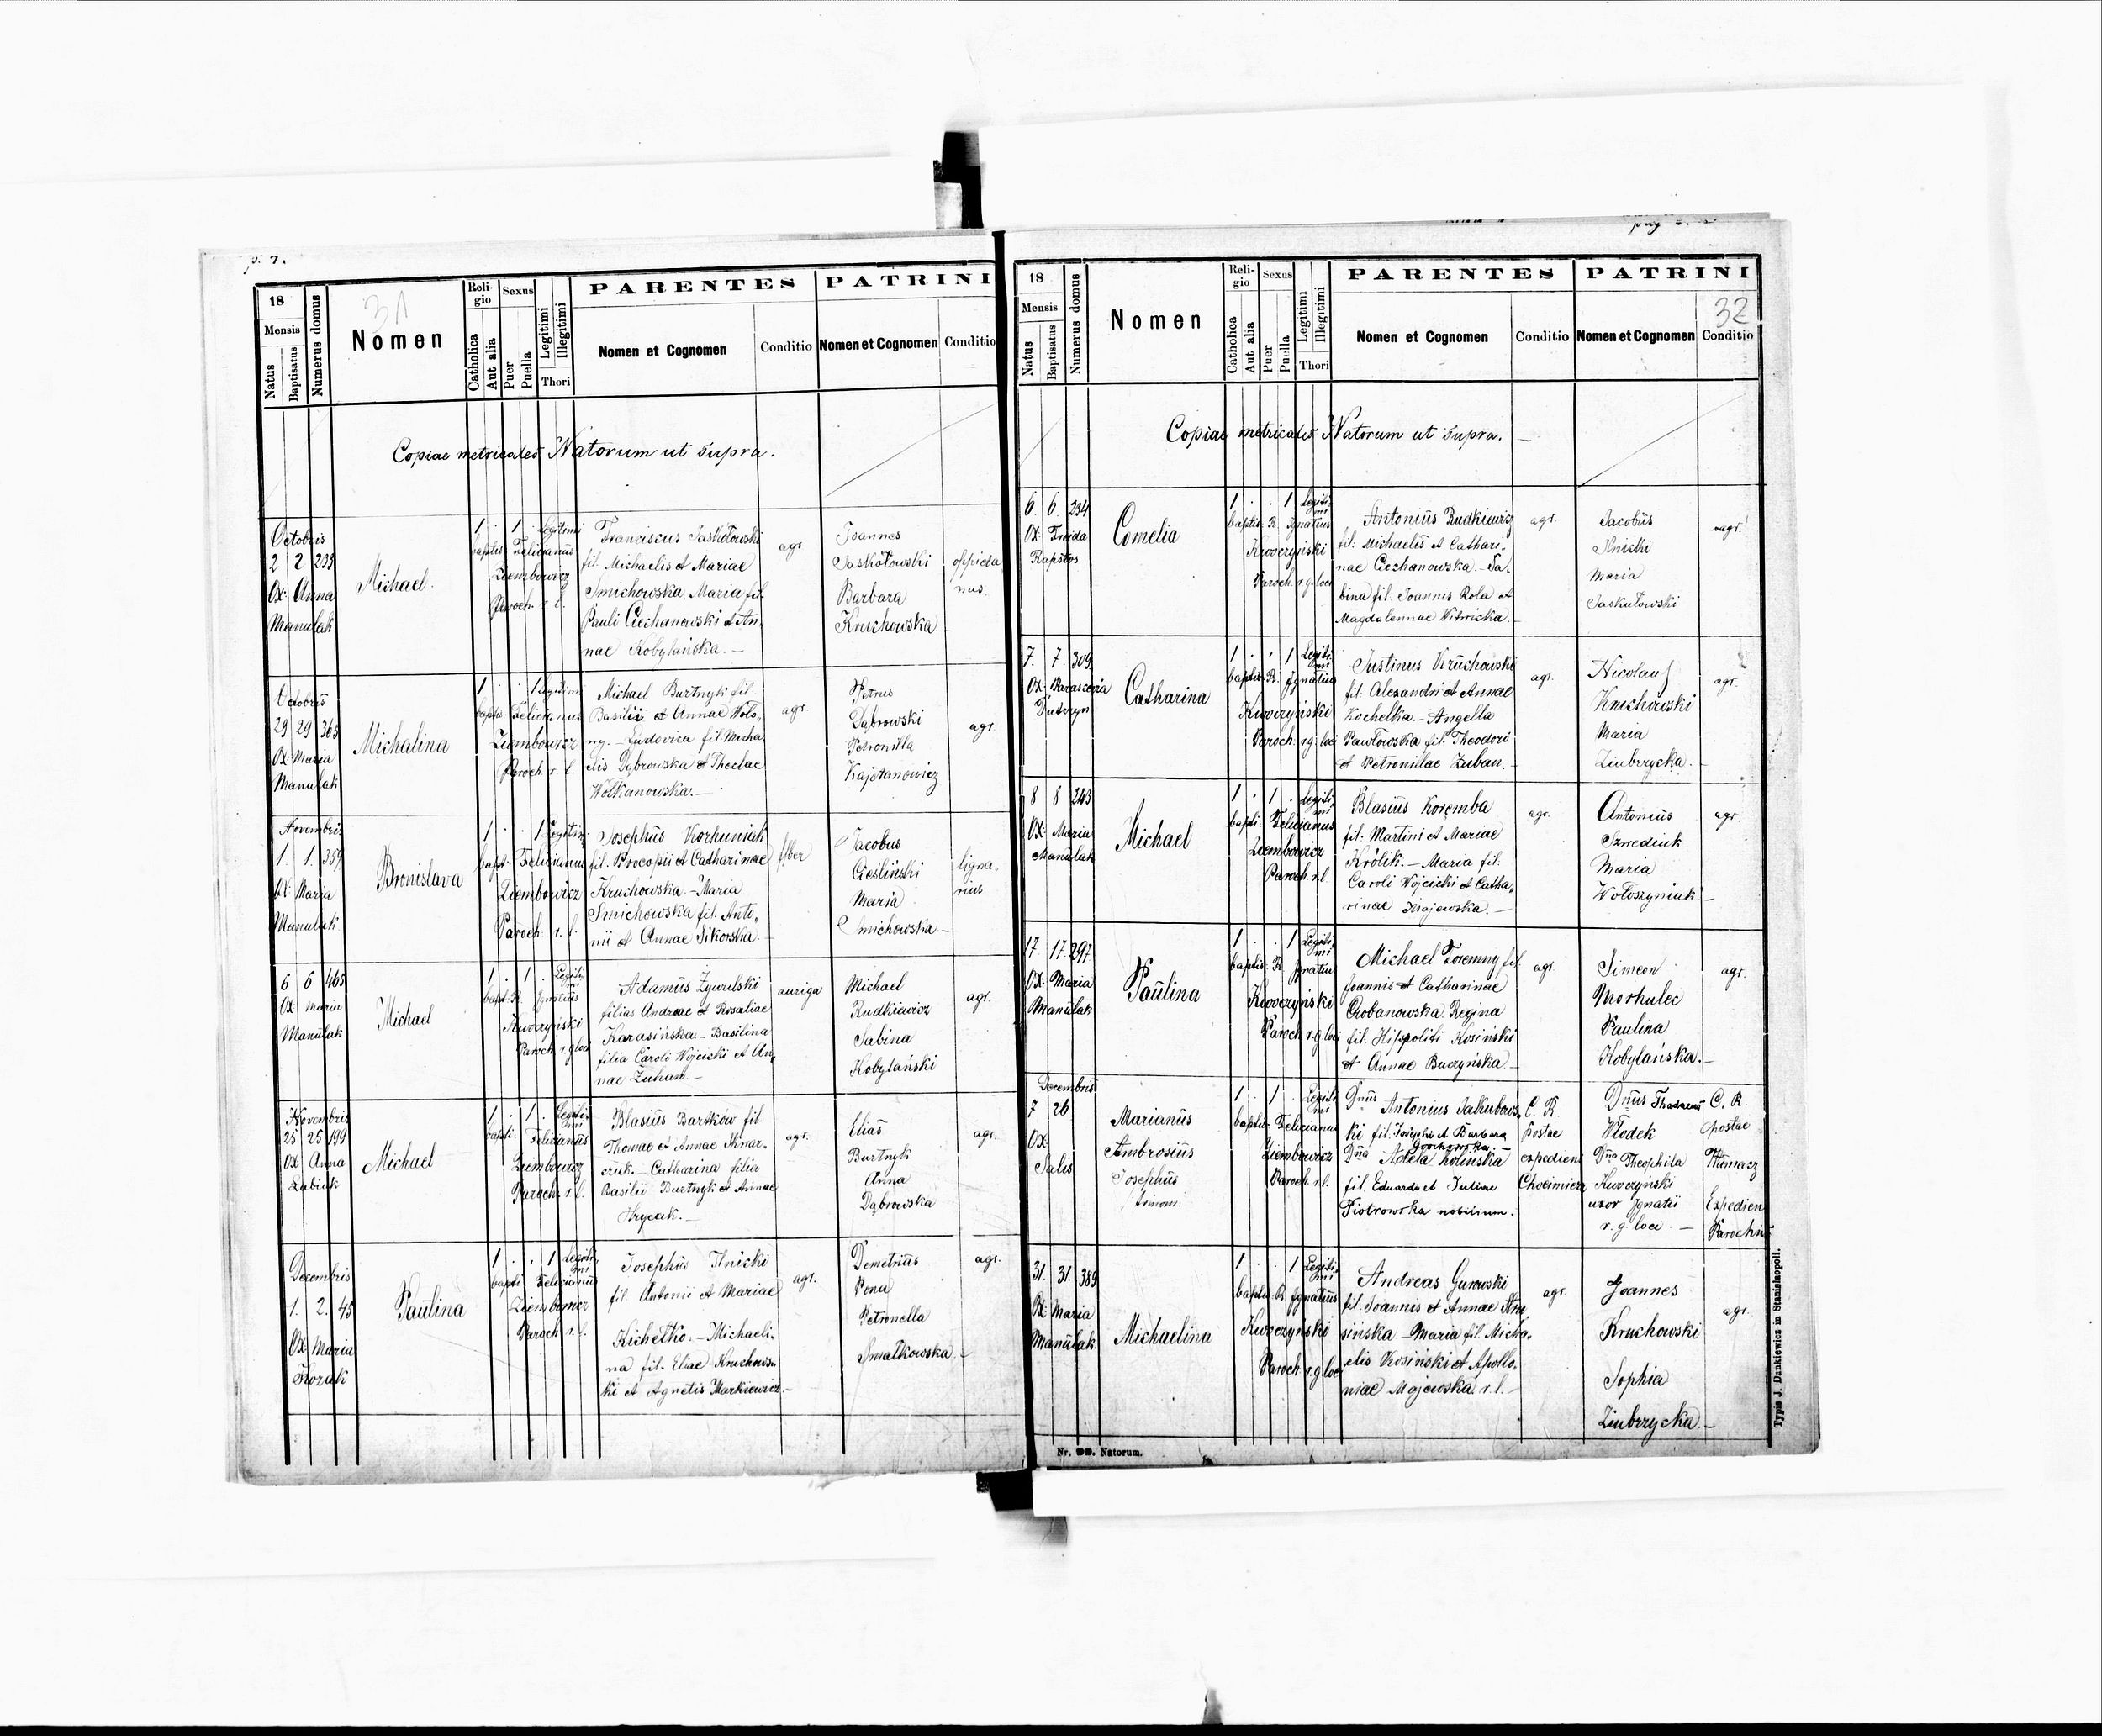 p. 7.
31
18
Mensis
Natus
Baptisatus
Numerus domus
Nomen
Religio
Catholica
Aut alia
Sexus
Puer
Puella
Legitimi
Illegitimi
Thori
PARENTES
Nomen et Cognomen
Conditio
PATRINI
Nomen et Cognomen
Conditio
Copiae metricales Natorum ut supra.
Octobris
2 2 235
Ox: Anna
Manulak
Michael.
1 . 1 . Legitimi
baptis Felicianus
Ziembowicz
Paroch. r. l.
Franciscus Jaskółowski
fil. Michaelis et Mariae
Smichowska, Maria fil.
Pauli Ciechanowski et An-
nae Kobylańska. —
agr
Joannes
Jaskółowski
Barbara
Kruchowska
oppida
nus
Octobris
29 29 365
Ox: Maria
Manulak
Michalina
1 . . 1 Legitimi
baptis Felicianus
Ziembowicz
Paroch r. l.
Michael Burtnyk fil.
Basilii et Annae Woło-
ny. — Ludovica fil Micha
elis Dąbrowska et Theclae
Wołkanowska. —
agr.
Petrus
Dąbrowski
Petronilla
Kajetanowicz
agr.
Novembris
1 1. 359
Ox: Maria
Manulak
Bronislava
1 . . 1 Legitimi
bapt. Felicianus
Ziembowicz
Paroch. r. l.
Josephus Korzhuniak
fil. Procopii et Catharinae
Kruchowska. — Maria
Smichowska fil. Anto-
nii et Annae Sikorska.
faber
Jacobus
Cieśliński
Maria
Smichowska. —
ligna-
rius
6 6 465
Ox: Maria
Manulak
Michael
1 . 1 . Legiti-
mi
bapt. R. Ignatius
Kuroczyński
Paroch. r. g. loci
Adamus Żywelski
filius Andreae et Rosaliae
Karasińska. — Basilina
filia Caroli Wojcicki et An-
nae Zuhan. —
auriga
Michael
Rudkiewicz
Sabina
Kobylański
agr.
Novembris
25 25 199
Ox Anna
Zabiuk
Michael
1 . 1 . Legiti-
mi
bapti. Felicianus
Ziembowicz
Paroch. r. l.
Blasius Bartków fil.
Thomae et Annae
czuk. — Catharina filia
Basilii Burtnyk et Annae
Hryczak. —
agr.
Elias
Burtnyk
Anna
Dąbrowska
agr.
Decembris
1. 2. 45
Ox: Maria
Kozak
Paulina
1 . . 1 Legiti-
mi
bapti Felicianus
Ziembowicz
Paroch r. l.
Josephus Ilnicki
fil. Antonii et Mariae
Kichełko. — Michaeli-
na fil. Eliae Kruchows-
ki et Agnetis Markiewicz. —
agr.
Demetrius
Pona
Petronella
Smalkowska. —
agr.
32
18
Mensis
Natus
Baptisatus
Numerus domus
Nomen
Religio
Catholica
Aut alia
Sexus
Puer
Puella
Legitimi
Illegitimi
Thori
PARENTES
Nomen et Cognomen
Conditio
PATRINI
Nomen et Cognomen
Conditio
Copiae metricales Natorum ut supra. —
6. 6. 234
Ox:
Cornelia
1 . . 1 Legiti-
mi
baptis. R. Ignatius
Kuroczyński
Paroch. r. g. loci
Antonius Rudkiewicz
fil: Michaelis et Cathari-
nae Ciechanowska. — Sa-
bina fil. Joannis Rola et
Magdalennae Witwicka.
agr.
Jacobus
Ilnicki
Maria
Jaskułowski
agr.
7. 7. 309.
Ox: Parascevia
Catharina
1 . . 1 Legiti-
mi
baptis. R. Ignatius
Kuroczyński
Paroch. r. g. loci
Justinus Kruchowski
fil. Alexandri et Annae
Kochelka. — Angella
Pawłowska fil. Theodori
et Petronilae Zuban. —
agr.
Nicolaus
Kruchowski
Maria
Ziubrzycka. —
agr.
8 8 243
Ox: Maria
Manulak
Michael
1 . 1 . Legiti-
mi
bapti Felicianus
Ziembowicz
Paroch. r. l.
Blasius Koremba
fil. Martini et Mariae
Królik. — Maria fil.
Caroli Wojcicki et Catha-
rinae Krajewska. —
agr.
Antonius
Szwediuk
Maria
Wołoszyniuk. —
agr.
17 17 297
Ox: Maria
Manulak
Paulina
1 . . 1 Legiti-
mi
baptis. R. Ignatius
Kuroczyński
Paroch. r. g. loci
Michael Foremny fil.
Joannis et Catharinae
Czobanowska. Regina
fil. Hippoliti Kosiński
et Annae Buczyńska. —
agr.
Simeon
Morhulec
Paulina
Kobylańska. —
agr.
Decembris
7 26
Ox:
Salis
Marianus
Ambrosius
Josephus
1 . 1 . Legiti
mi
baptis Felicianus
Ziembowicz
Paroch. r. l.
Dnus Antonius Jakubows-
ki fil. Josephi et Barbara
Dna Adela Kolinska
fil. Eduardi et Juliae
Piotrowska nobilium.
C. R.
Postae
expediens
Chocimierz
Dnus Thadaeus
Włodek
Dna Theophila
Kuroczyński
uxor Ignatii
r. g. loci. —
C. R.
postae
Tłumacz
Expedien
Parochus
31. 31. 389
Ox: Maria
Manulak.
Michaelina
1 . . 1 Legiti-
mi
baptis. R. Ignatius
Kuroczyński
Paroch. r. g. loci
Andreas Gurowski
fil. Joannis et Annae
sińska — Maria fil. Micha-
elis Kosiński et Apollo-
niae Majewska r. l. —
agr.
Joannes
Kruchowski
Sophia
Ziubrzycka. —
agr.
Nr. Natorum.
Typis J. Dankiewicz in Stanislaopoli.